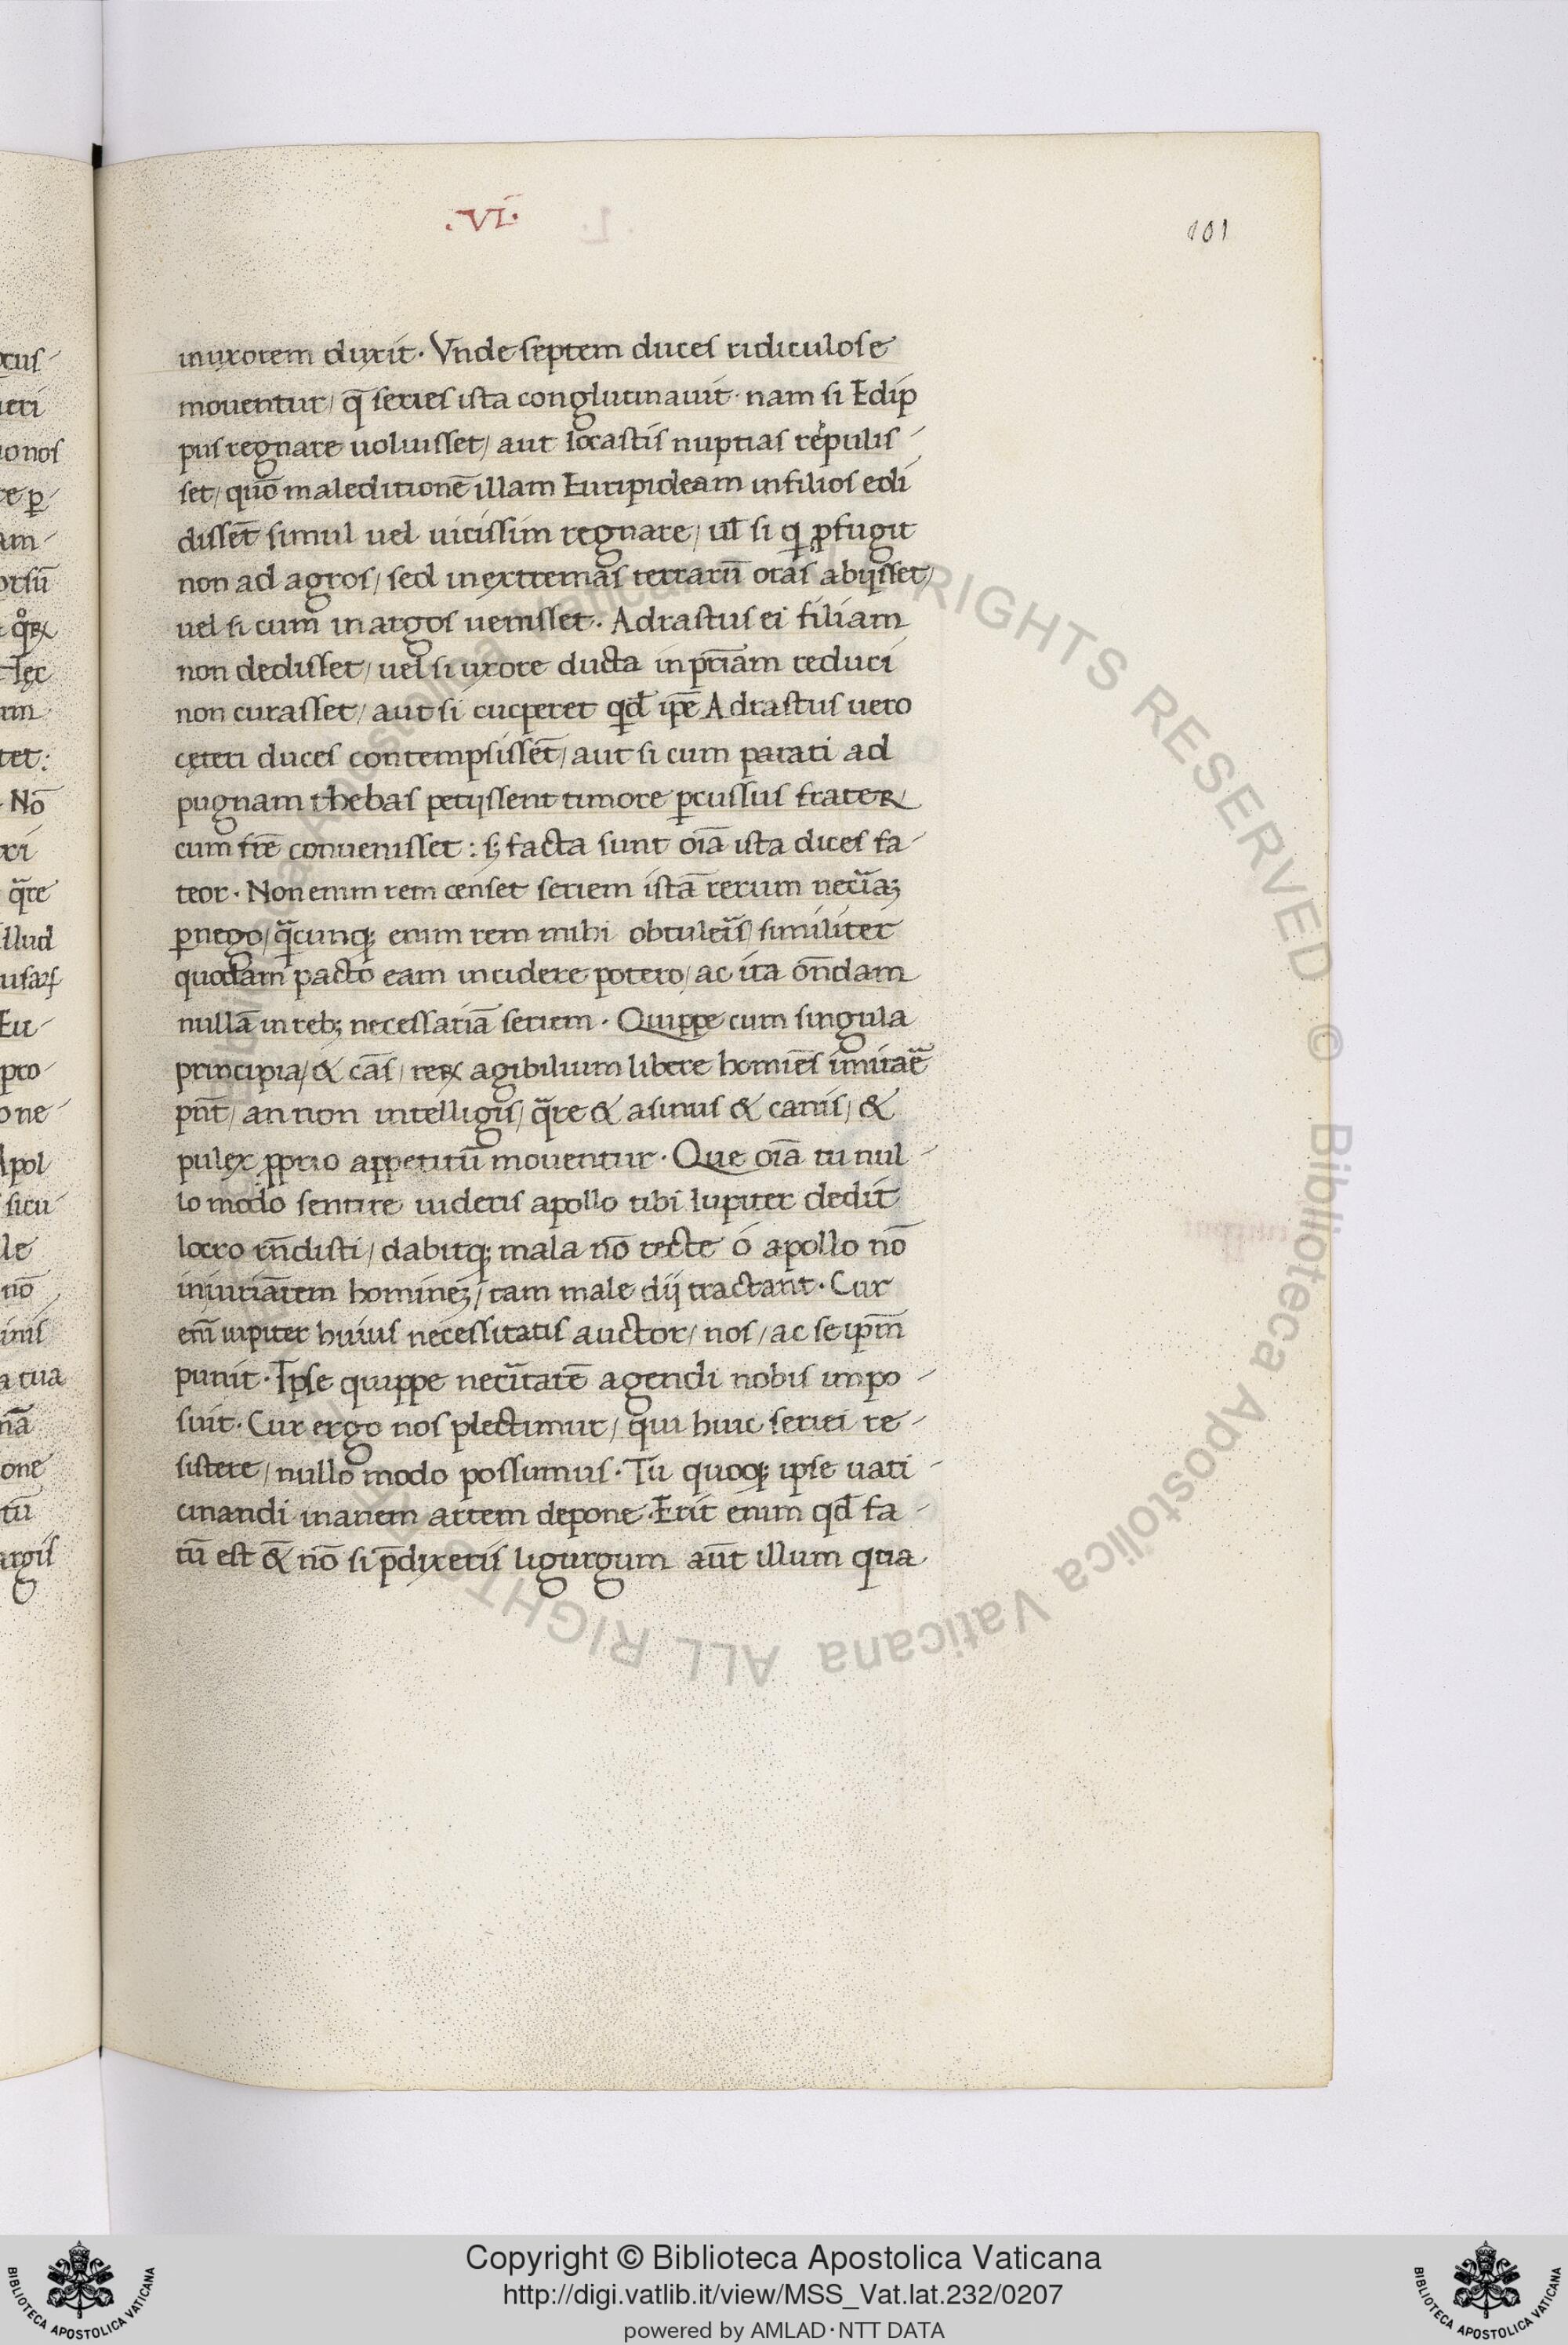 .VI.
101
in uxorem duxit. Vnde septem duces ridiculose
mouentur / q̄ series ista conglutinauit. nam si Edip
pus regnare uoluisset / aut Iocastis nuptias repulis-
set / quō maleditionē illam Euripideam in filios edi
dissēt simul uel uicissim regnare / ul̄ si q ꝓfugit
non ad agros / sed in extremas terrarū oras abijsset /
uel si cum in argos uenisset. Adrastus ei filiam
non dedisset / uel si uxore ducta in pr̄iam reduci
non curasset / aut si cuperet qd̄ ip̄e Adrastus uero
cęteri duces contempsissēt / aut si cum parati ad
pugnam thebas petijssent timore ꝑcussus frater
cum fr̄e conuenisset : s; facta sunt oīa ista dices fa-
teor. Non enim rem censet seriem istā rerum necīa;
ꝑnego / q̄cunq; enim rem mihi obtulēis / similiter
quodam pacto eam incidere potero / ac ita on̄dam
nullā in reb; necessariā seriem. Quippe cum singula
principia / & cās / reꝝ agibilium libere homiēs imitaē
pn̄t / an non intelligis / q̄re & asinus & canis / &
pulex ꝓprio appetitū mouentur. Que oīa tu nul-
lo modo sentire uideris apollo tibi Iupiter dedit
locro rn̄disti / dabitq; mala nō recte ó apollo nō
iniuriātem homine; / tam male dij tractant. Cur
em̄ iupiter huius necessitatis auctor / nos / ac se ip̄m
punit. Ipse quippe necītatē agendi nobis impo-
suit. Cur ergo nos plectimur / qui huic seriei re-
sistere / nullo modo possumus. Tu quoq; ipse uati-
cinandi inanem artem depone. Erit enim qd̄ fa-
tū est & nō si p̄dixeris ligurgum aūt illum qria
Copyright © Biblioteca Apostolica Vaticana
http://digi.vatlib.it/view/MSS_Vat.lat.232/0207
powered by AMLAD·NTT DATA
BIBLIOTECA APOSTOLICA VATICANA
BIBLIOTECA APOSTOLICA VATICANA